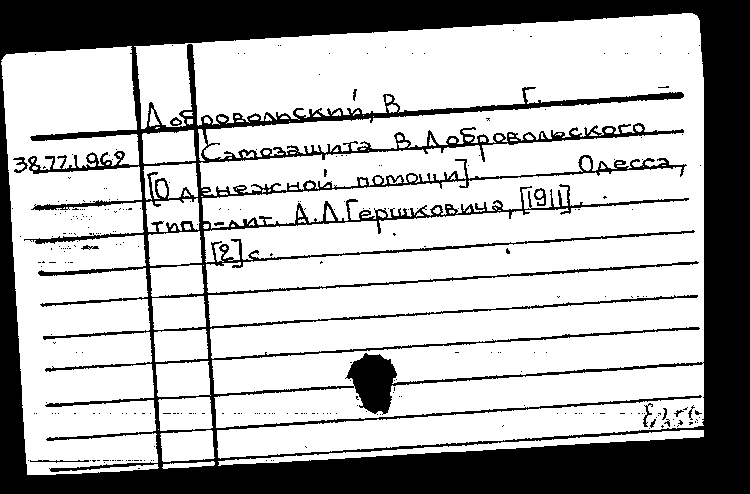 Добровольский, В. Г.
38.77.1.962 Самозащита В. Добровольского.
[О денежной помощи]. Одесса,
типо-лит. А.Л.Гершковича, [1911].
[2] с.